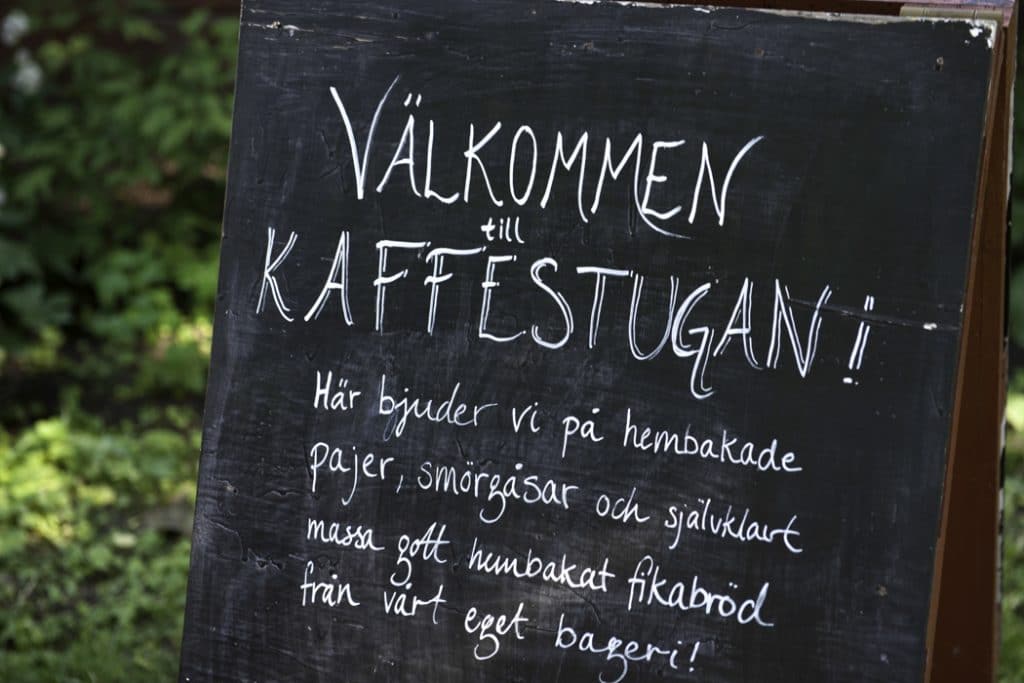 VÄLKOMMEN
till
KAFFESTUGAN!
Här bjuder vi på hembakade
pajer, smörgåsar och självklart
massa gott hembakat fikabröd
från vårt eget bageri!